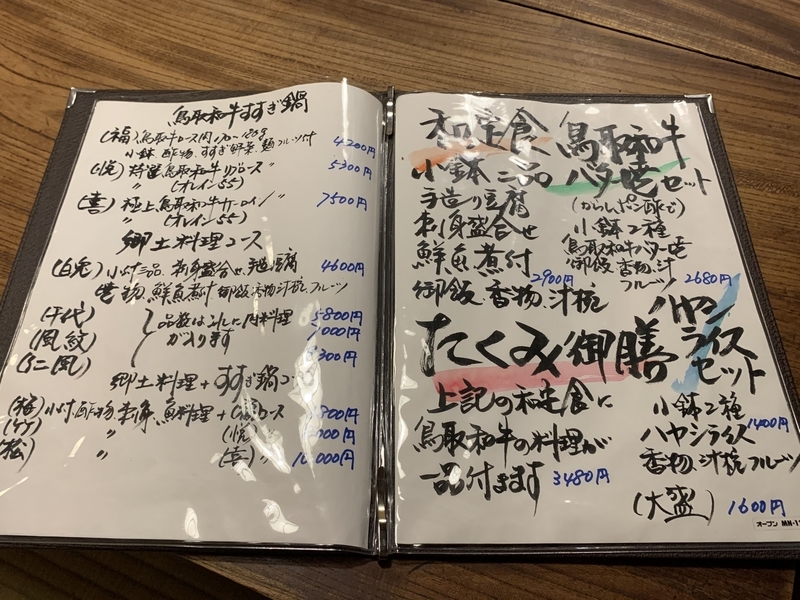 鳥取和牛すすぎ鍋
(福) 鳥取牛ロース肉 120g
小鉢 酢物 すすぎ野菜 麺 フルーツ付 4200円
(悦) 特選鳥取和牛リブロース 〃 5300円
〃 (オレイン55)
(喜) 極上鳥取和牛サーロイン 〃 7500円
(オレイン55)
郷土料理コース
(白兎) 小付三品 刺身盛合せ 豆腐 4600円
焼物 鮮魚煮付 御飯 香物 汁椀 フルーツ
(千代) 品数は 肉料理 5800円
(風紋) が入ります 000円
(仁風) 300円
郷土料理+すすぎ鍋コ
(梅) 小付 酢物 刺身 魚料理 + コース 800円
(竹) 〃 (悦) 〃 000円
(松) 〃 (喜) 〃 10000円
和定食
小鉢二品
手造り豆腐
刺身盛合せ
鮮魚煮付 2900円
御飯 香物 汁椀
鳥取和牛
バター焼セット
(からしポン酢で)
小鉢2種
鳥取和牛バター焼
御飯 香物 汁
フルーツ 2680円
たくみ御膳
上記の和定食に
鳥取和牛の料理が
一品付きます 3480円
ハヤシ
ライス
セット
小鉢2種
ハヤシライス 1400円
香物 汁椀 フルーツ
(大盛) 1600円
オープン MN-1